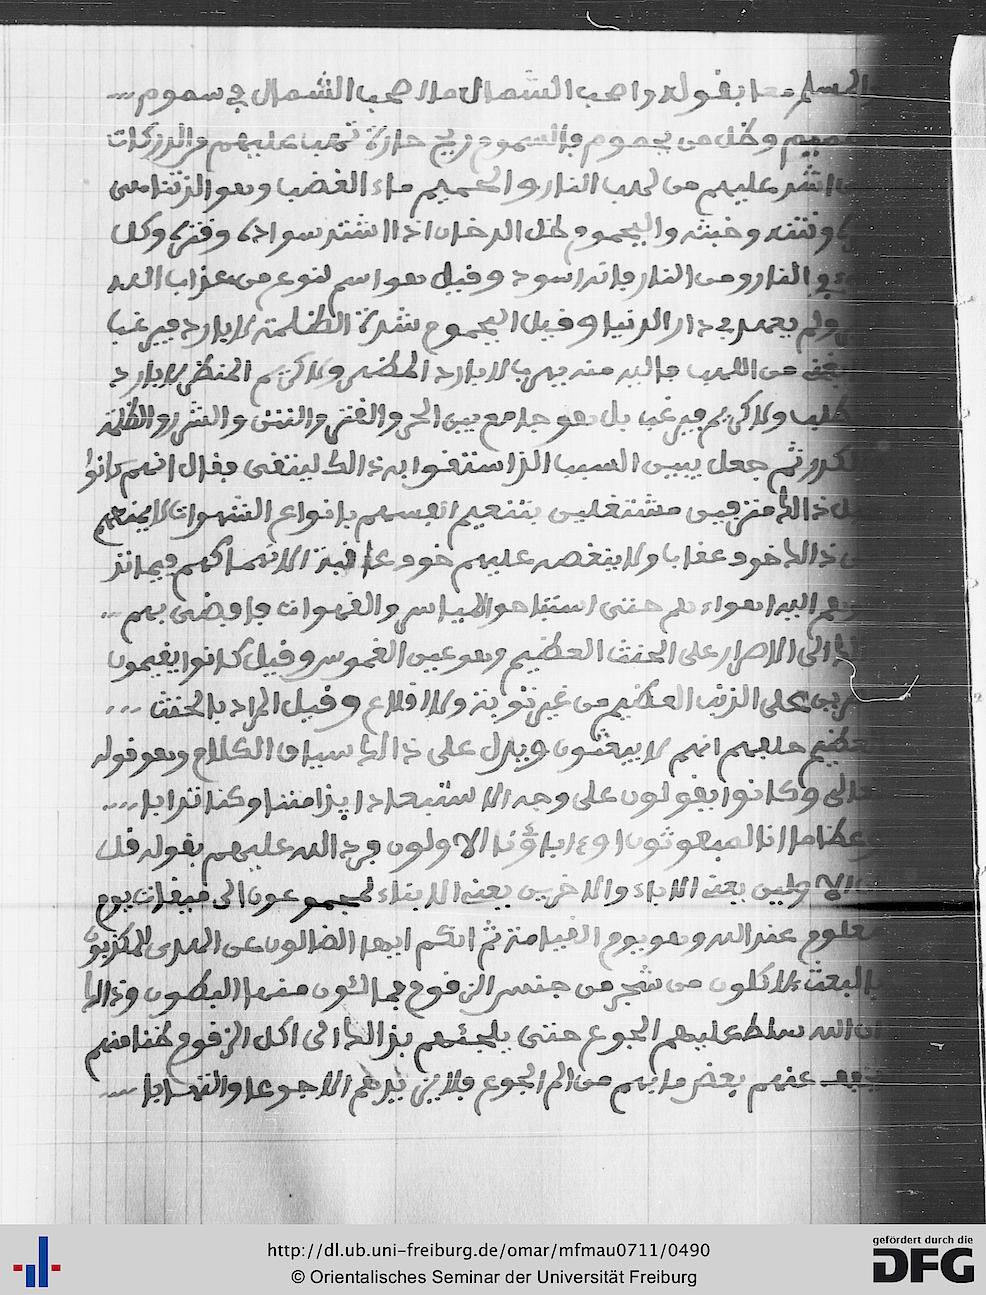 المسلم معا بقوله واصحب الشمال ما اصحب الشمال في سموم ...
وحميم وظل من يحموم فالسموم ريح حارة تهب عليهم من الدركات
اشد عليهم من لهب النار والحميم ماء الغضب وهو الزائد من
ونتنه وخبثه واليحموم ظل الدخان اذا اشتد سواده وقتره وكل
النار ومن النار فانه اسود وقيل هو اسم لنوع من عذاب الله
ولم يعهد في دار الدنيا وقيل اليحموم شدة الظلمة لا بارد فيرغب
من اللهب فالبه منه يهرب لا بارد المظهر ولا كريم المنظر لا بارد
ولا كريم فيرغب بل هو جامع بين الحر والقتر والنتن والشر والظلمة
الكدر ثم جعل يبين السبب الذي استحقوا به ذالك لينتفى فقال انهم كانوا
قبل ذالك مترفين مشتغلين بتنعيم انفسهم بانواع الشهوات لا يمنعهم
من ذالك خوف عقاب ولا ينغصه عليهم خوف عاقبة لانهماكهم فيما
اليه اهواءهم حتى استباحوا والشهوات فافضى بهم ...
ذالك الى الاصرار على الحنث العظيم وهو عين الغموس وقيل كانوا يقيمون
على الذنب العظيم من غير توبة ولا اقلاع وقيل المراد بالحنث ...
العظيم حلفهم انهم لا يبعثون ويدل على ذالك سياق الكلام وهو قوله
تعالى وكانوا يقولون على وجه الاستبعاد ايذا متنا وكنا ترابا ....
وعظاما انا لمبعوثون اوءاباؤنا الاولون فرد الله عليهم بقوله قل
ان الاولين يعني الاباء والاخرين يعني الابناء لمجموعون الى ميقات يوم
معلوم عند الله وهو يوم القيامة ثم انكم ايها الضالون عن الهدى المكذبون
بالبعث لاكلون من شجر من جنس الزقوم فمالئون منها البطون وذالك
ان الله سلط عليهم الجوع حتى يلجئهم بذالك الى اكل الزقوم ظنا منهم
عنهم بعض ما بهم من الم الجوع فلا يزيدهم الا جوعا والتهابا ...
http://dl.ub.uni-freiburg.de/omar/mfmau0711/0490
© Orientalisches Seminar der Universität Freiburg
gefördert durch die
DFG